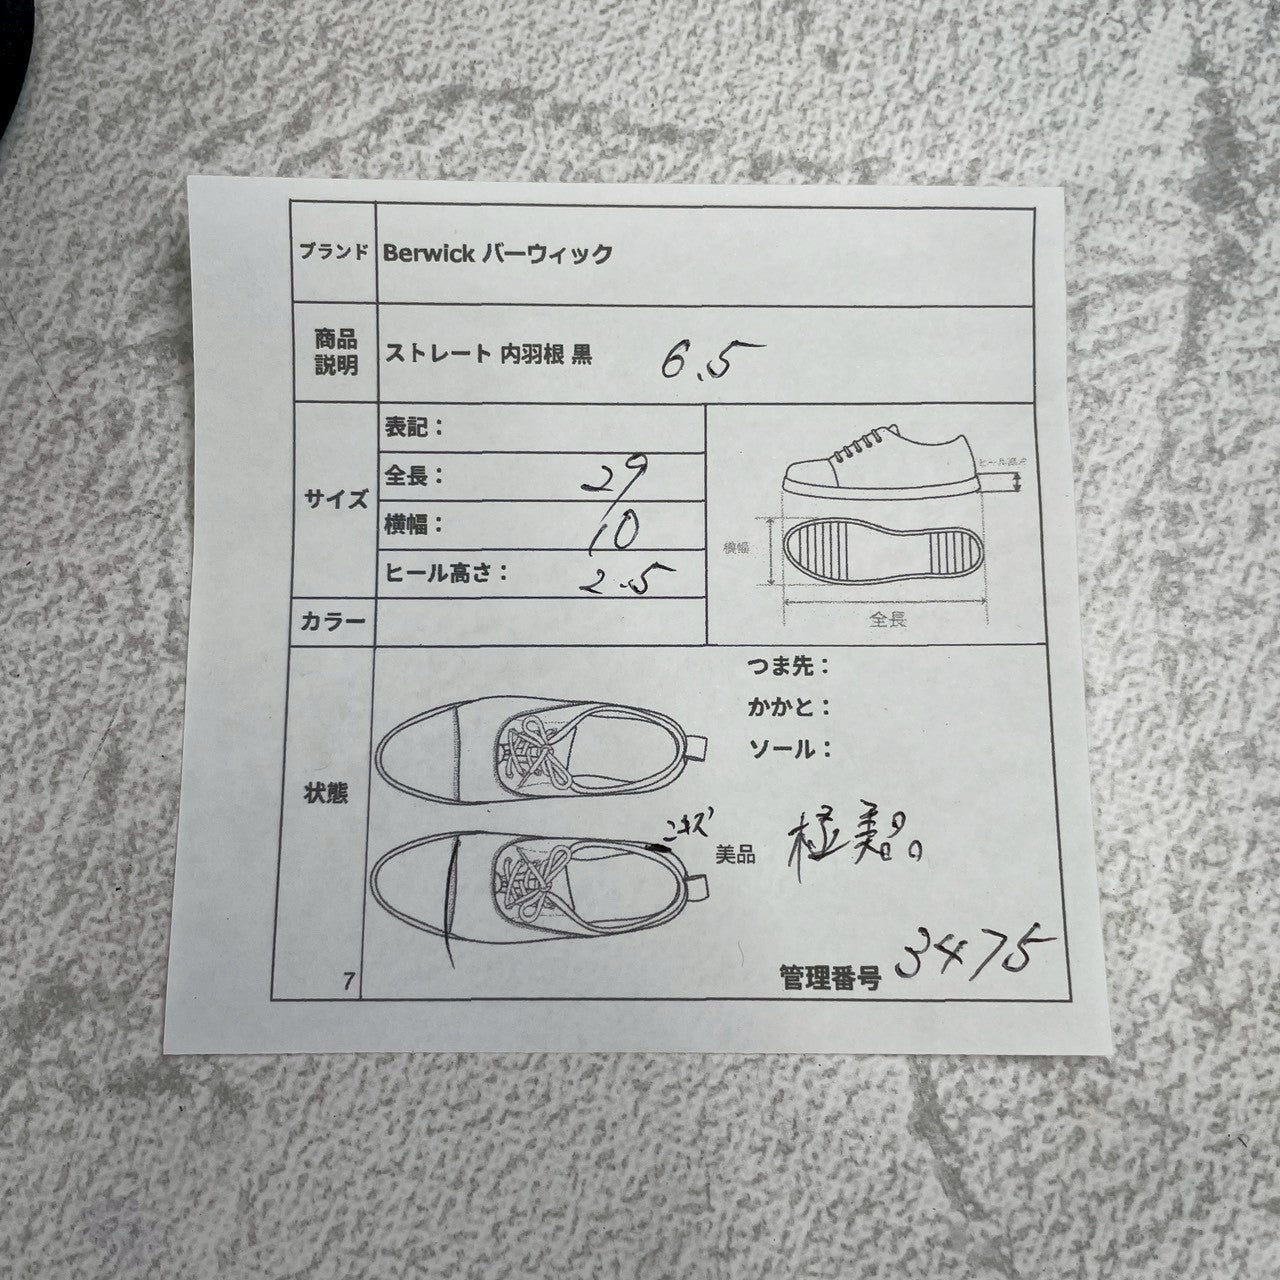 ブランド Berwick バーウィック
商品説明 ストレート 内羽根 黒 6.5
サイズ
表記：
全長： 29
横幅： 10
ヒール高さ： 2.5
ヒール高さ
横幅
全長
カラー
状態
つま先：
かかと：
ソール：
キズ
美品 極美品
7
管理番号 3475